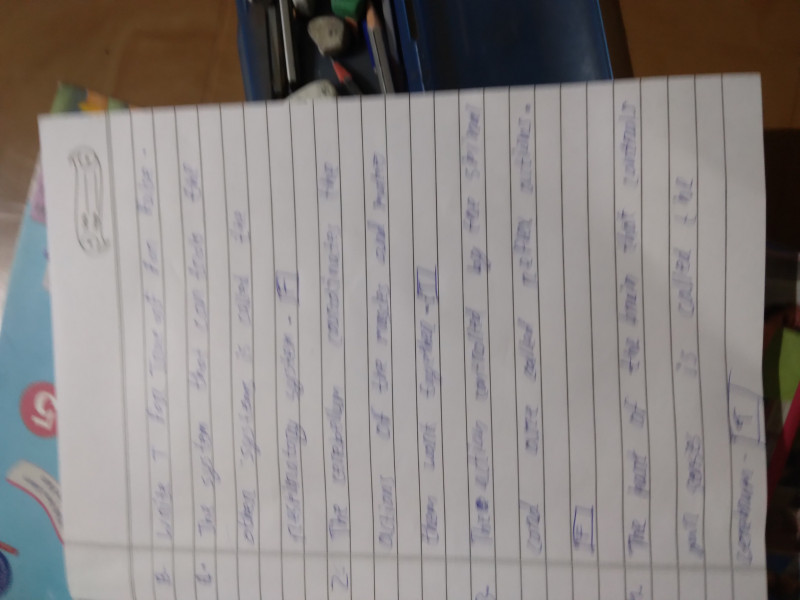 B. Write T for True or F for False.
1. The system that controls the
other systems is called the
respiratory system - F
2. The cerebellum coordinates the
actions of the muscles and makes
them work together - T
3. The actions controlled by the spinal
cord are called reflex actions.
T
4. The part of the brain that controls
your senses is called the
cerebrum - T
5